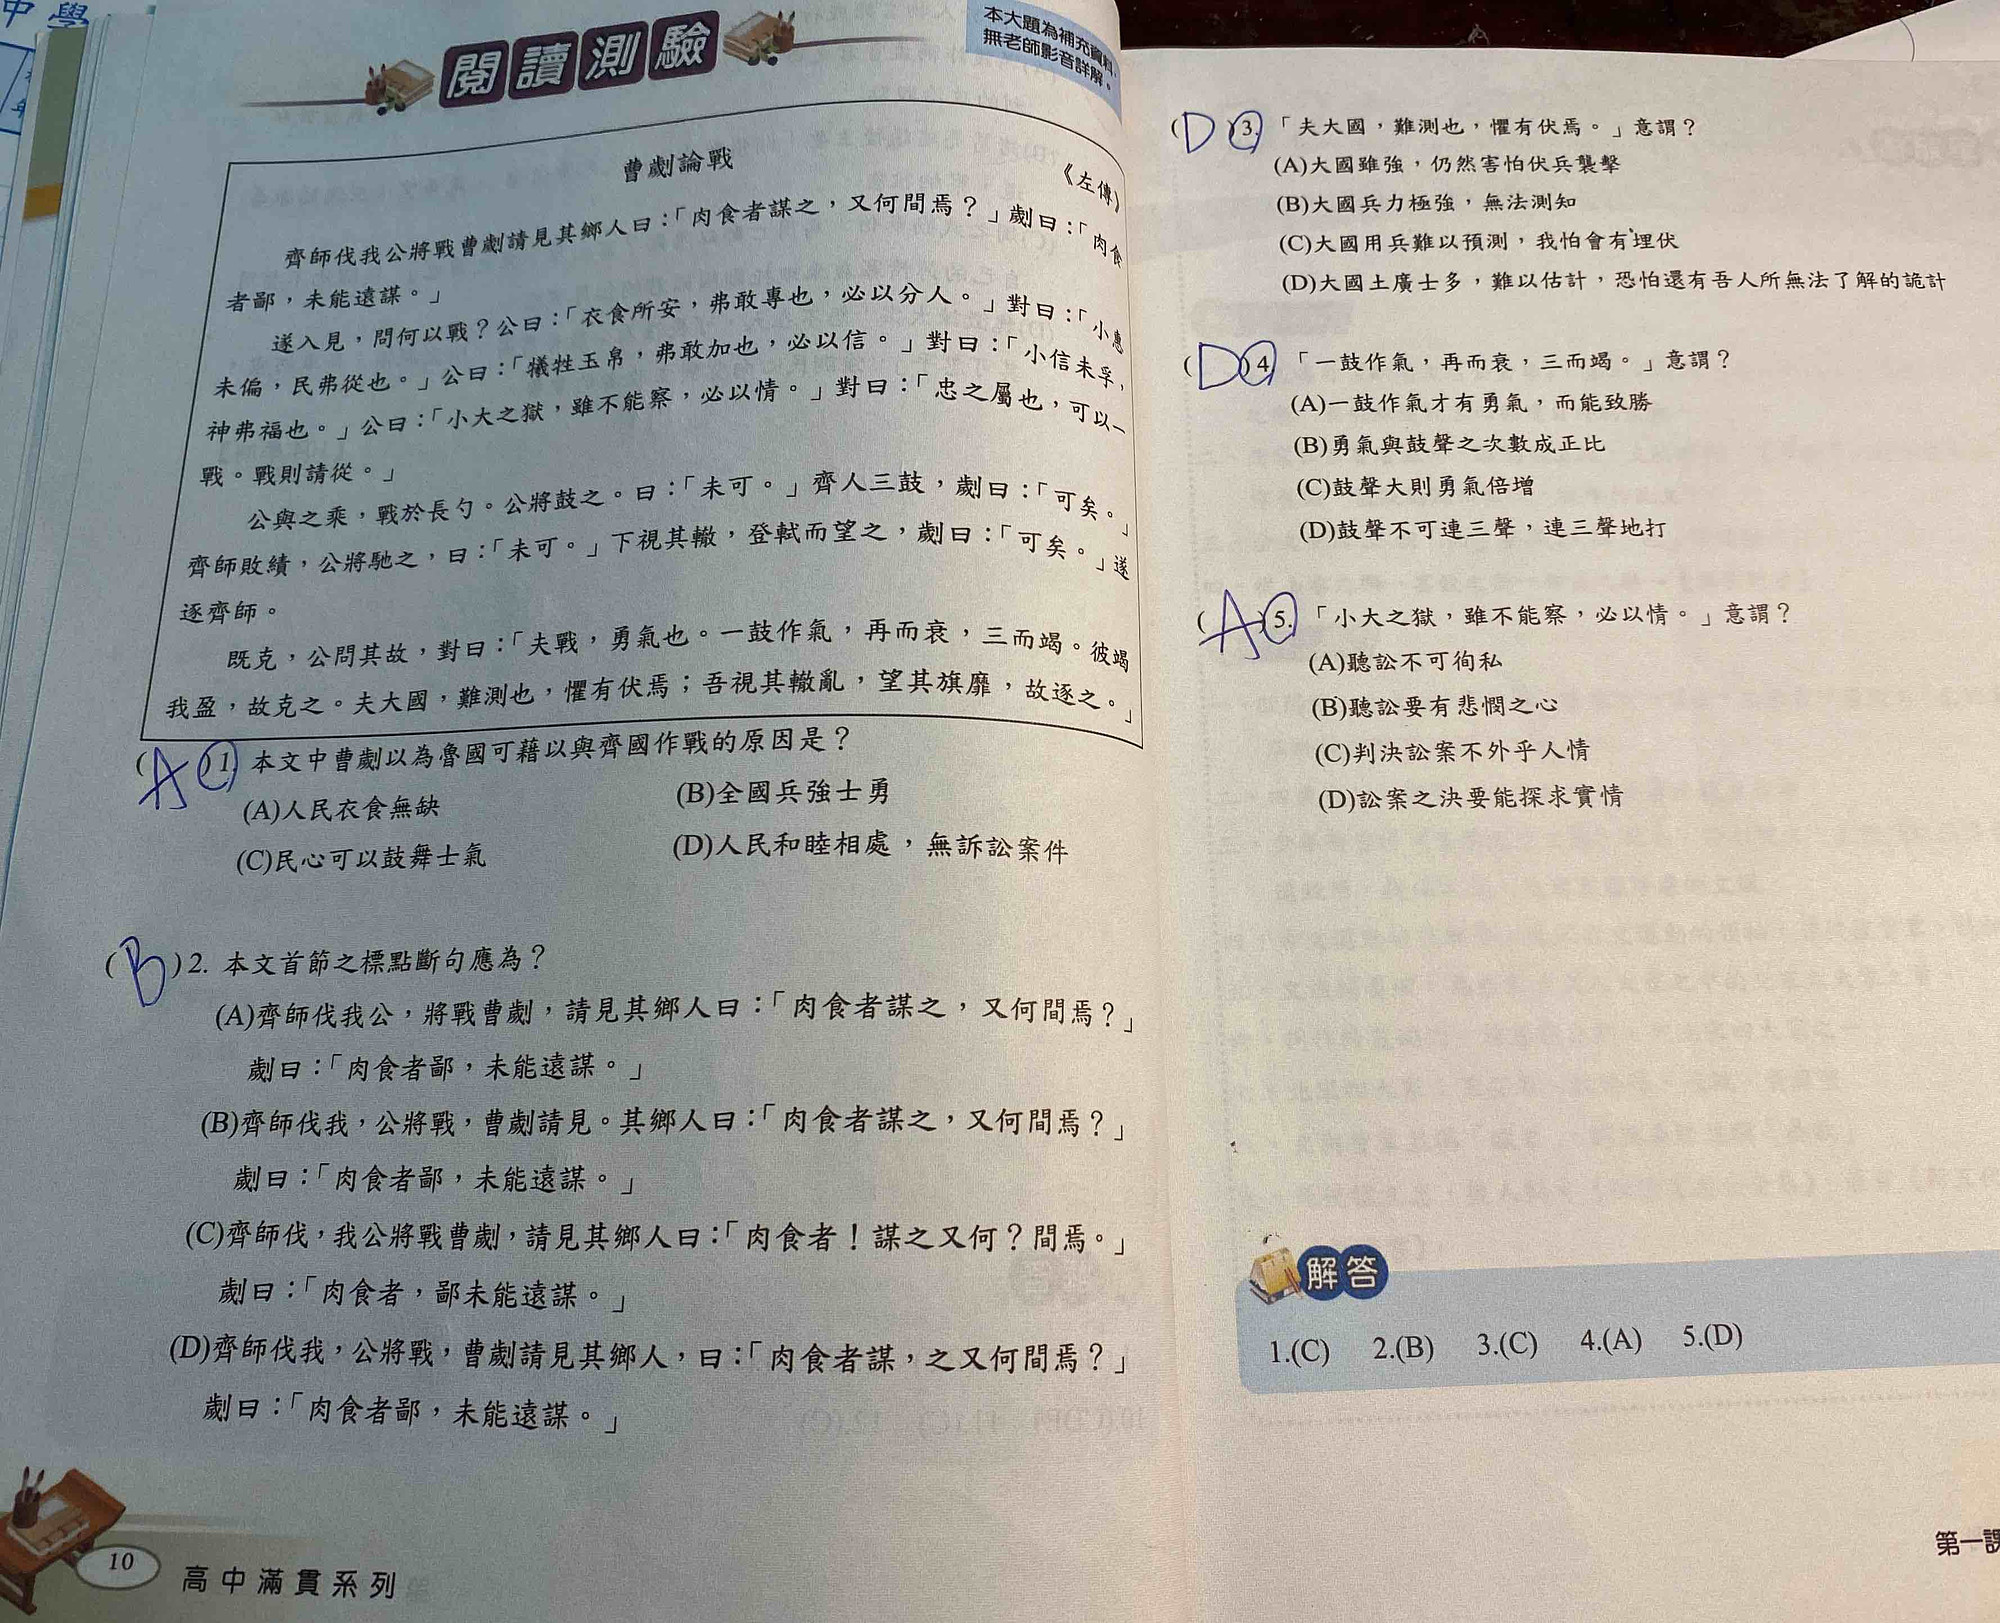 中學
閱讀測驗
本大題為補充資料，
無老師影音詳解。
曹劌論戰
《左傳》
齊師伐我公將戰曹劌請見其鄉人曰：「肉食者謀之，又何間焉？」劌曰：「肉食
者鄙，未能遠謀。」
遂入見，問何以戰？公曰：「衣食所安，弗敢專也，必以分人。」對曰：「小惠
未偏，民弗從也。」公曰：「犧牲玉帛，弗敢加也，必以信。」對曰：「小信未孚，
神弗福也。」公曰：「小大之獄，雖不能察，必以情。」對曰：「忠之屬也，可以一
戰。戰則請從。」
公與之乘，戰於長勺。公將鼓之。曰：「未可。」齊人三鼓，劌曰：「可矣。」
齊師敗績，公將馳之，曰：「未可。」下視其轍，登軾而望之，劌曰：「可矣。」遂
逐齊師。
既克，公問其故，對曰：「夫戰，勇氣也。一鼓作氣，再而衰，三而竭。彼竭
我盈，故克之。夫大國，難測也，懼有伏焉；吾視其轍亂，望其旗靡，故逐之。」
(A)1. 本文中曹劌以為魯國可藉以與齊國作戰的原因是？
(A)人民衣食無缺 (B)全國兵強士勇
(C)民心可以鼓舞士氣 (D)人民和睦相處，無訴訟案件
(B)2. 本文首節之標點斷句應為？
(A)齊師伐我公，將戰曹劌，請見其鄉人曰：「肉食者謀之，又何間焉？」
劌曰：「肉食者鄙，未能遠謀。」
(B)齊師伐我，公將戰，曹劌請見。其鄉人曰：「肉食者謀之，又何間焉？」
劌曰：「肉食者鄙，未能遠謀。」
(C)齊師伐，我公將戰曹劌，請見其鄉人曰：「肉食者！謀之又何？間焉。」
劌曰：「肉食者，鄙未能遠謀。」
(D)齊師伐我，公將戰，曹劌請見其鄉人，曰：「肉食者謀，之又何間焉？」
劌曰：「肉食者鄙，未能遠謀。」
10 高中滿貫系列
(D)3. 「夫大國，難測也，懼有伏焉。」意謂？
(A)大國雖強，仍然害怕伏兵襲擊
(B)大國兵力極強，無法測知
(C)大國用兵難以預測，我怕會有埋伏
(D)大國土廣士多，難以估計，恐怕還有吾人所無法了解的詭計
(D)4. 「一鼓作氣，再而衰，三而竭。」意謂？
(A)一鼓作氣才有勇氣，而能致勝
(B)勇氣與鼓聲之次數成正比
(C)鼓聲大則勇氣倍增
(D)鼓聲不可連三聲，連三聲地打
(A)5. 「小大之獄，雖不能察，必以情。」意謂？
(A)聽訟不可徇私
(B)聽訟要有悲憫之心
(C)判決訟案不外乎人情
(D)訟案之決要能探求實情
解答
1.(C) 2.(B) 3.(C) 4.(A) 5.(D)
第一課